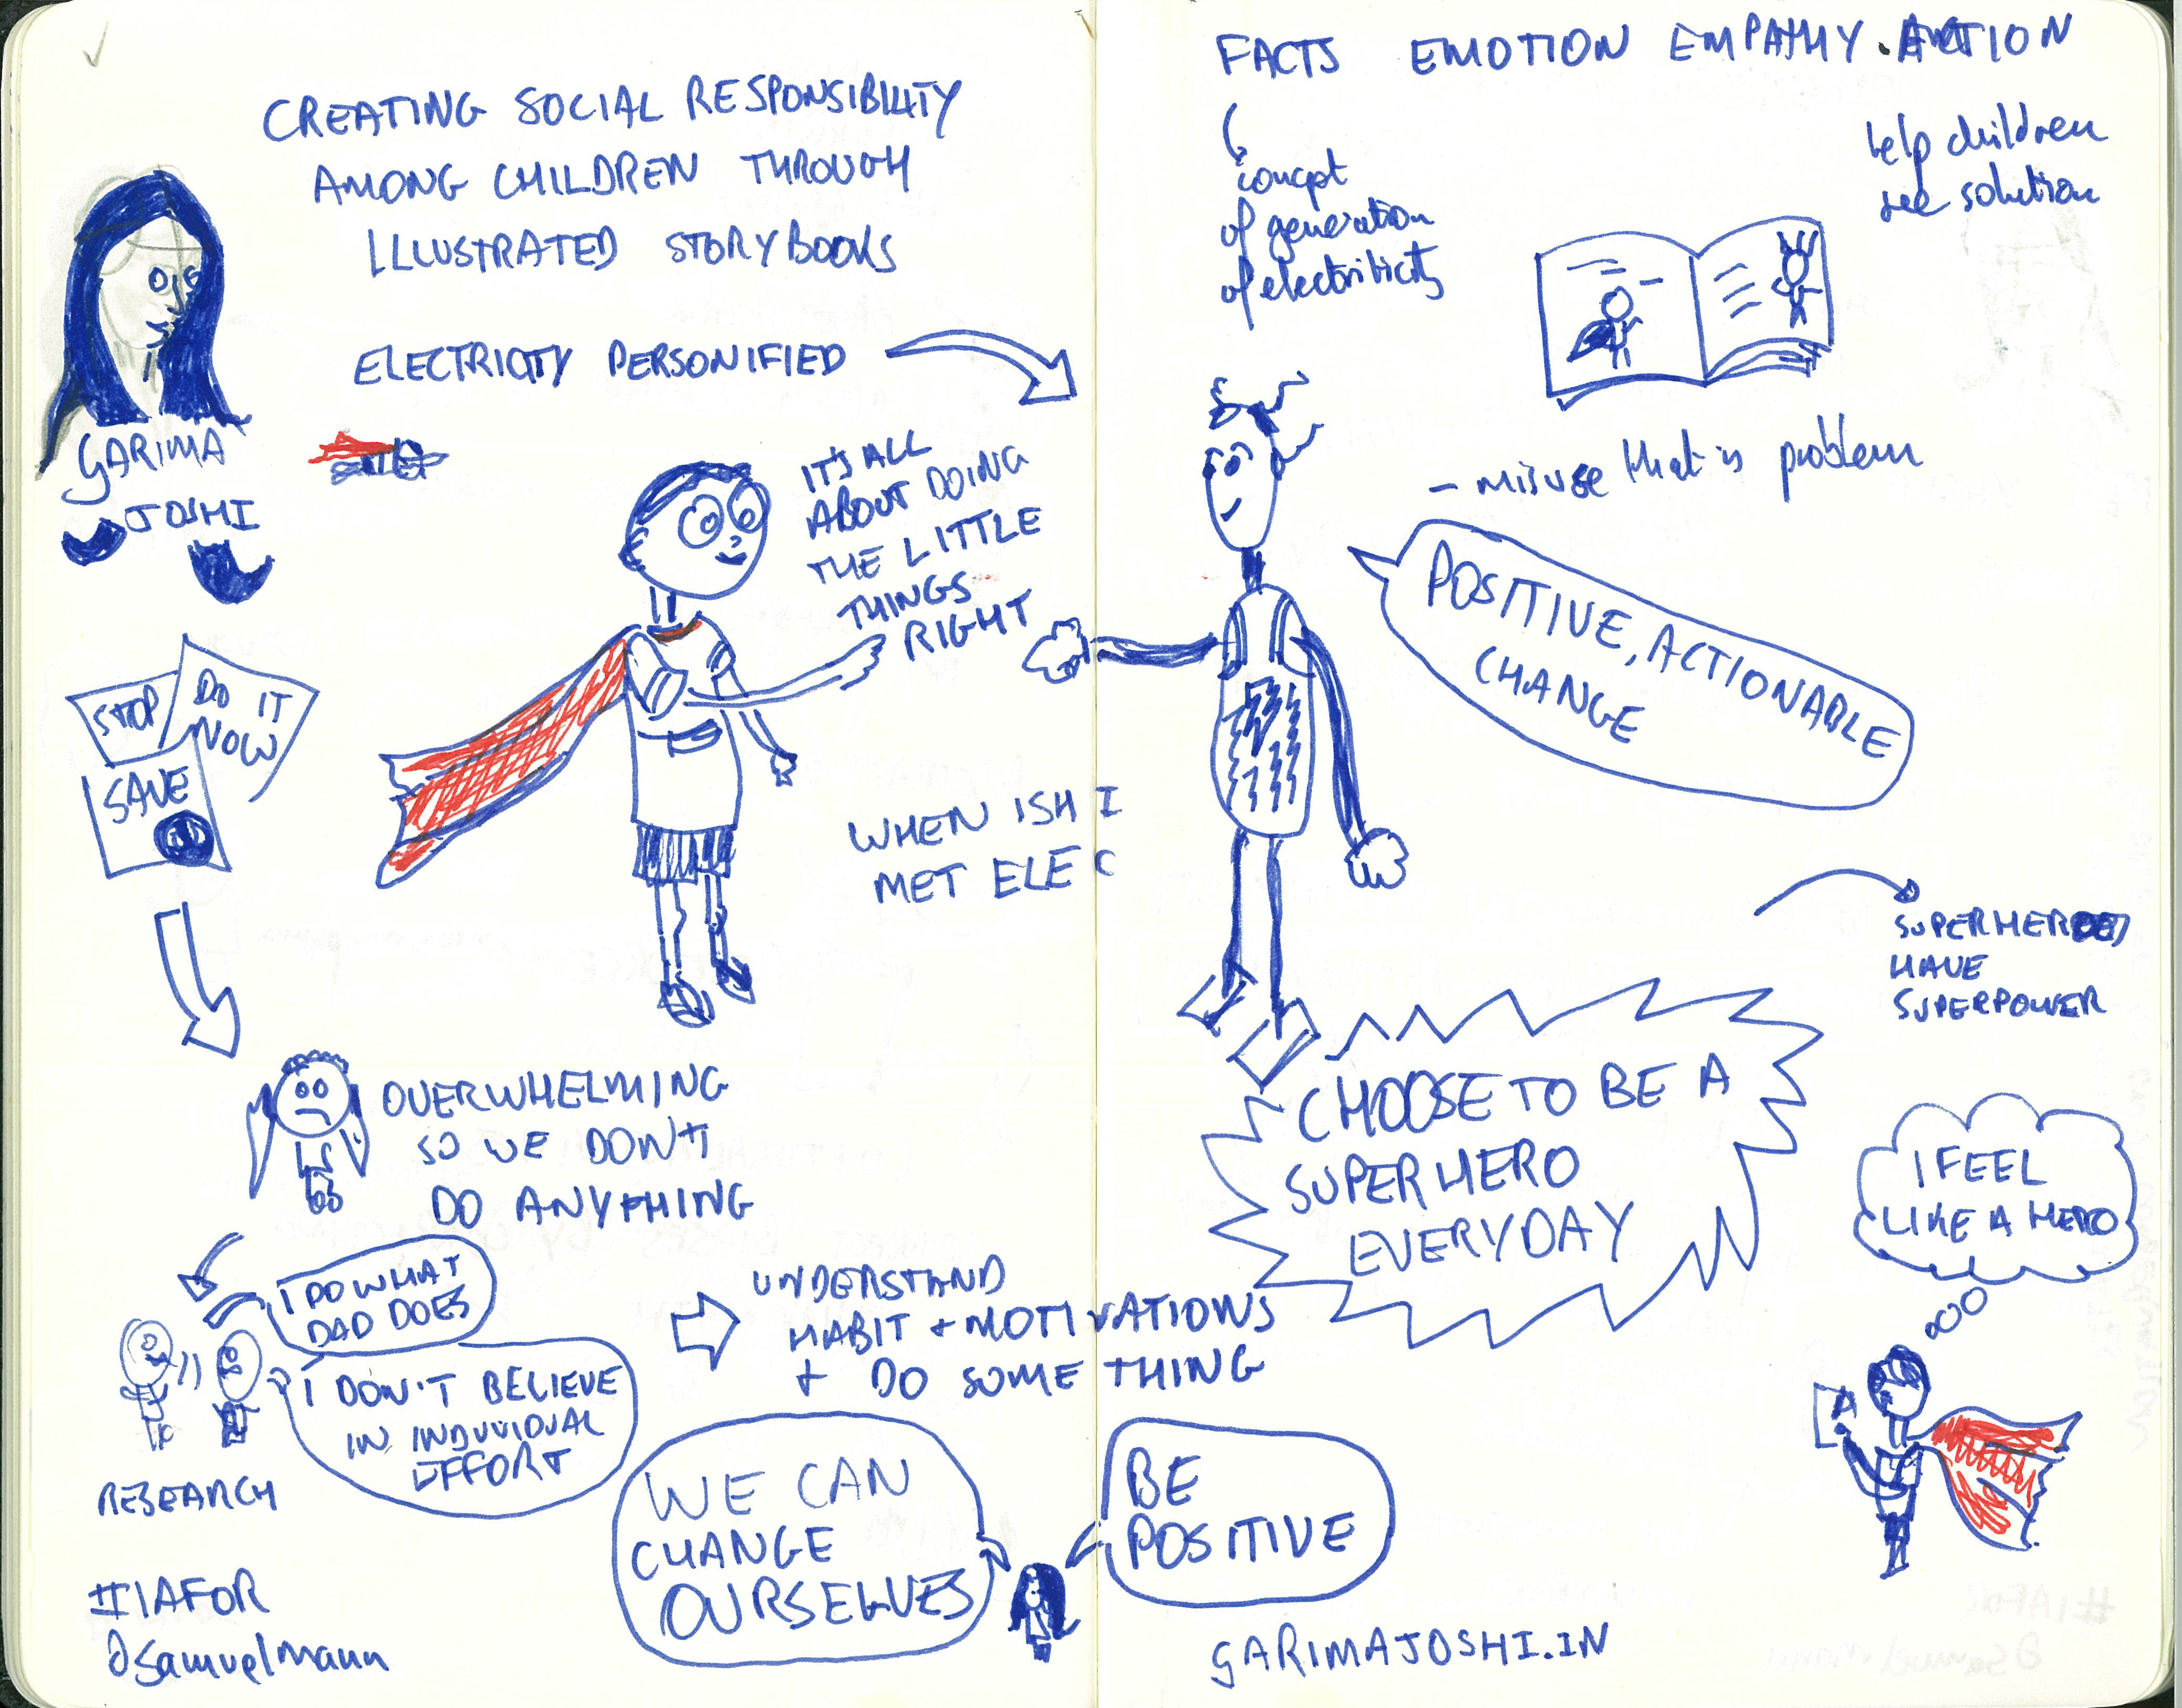 CREATING SOCIAL RESPONSIBILITY
AMONG CHILDREN THROUGH
ILLUSTRATED STORYBOOKS
ELECTRICITY PERSONIFIED
GARIMA
JOSHI
IT'S ALL
ABOUT DOING
THE LITTLE
THINGS
RIGHT
STOP
DO IT
NOW
SAVE
WHEN ISHI
MET ELEC
OVERWHELMING
SO WE DON'T
DO ANYTHING
I DO WHAT
DAD DOES
I DON'T BELIEVE
IN INDIVIDUAL
EFFORT
RESEARCH
UNDERSTAND
HABIT + MOTIVATIONS
+ DO SOMETHING
WE CAN
CHANGE
OURSELVES
#IAFOR
@samuelmann
FACTS EMOTION EMPATHY. ACTION
concept
of generation
of electriticity
help children
see solution
- misuse that is problem
POSITIVE, ACTIONABLE
CHANGE
SUPERHEROES
HAVE
SUPERPOWER
CHOOSE TO BE A
SUPERHERO
EVERYDAY
I FEEL
LIKE A HERO
BE
POSITIVE
GARIMAJOSHI.IN